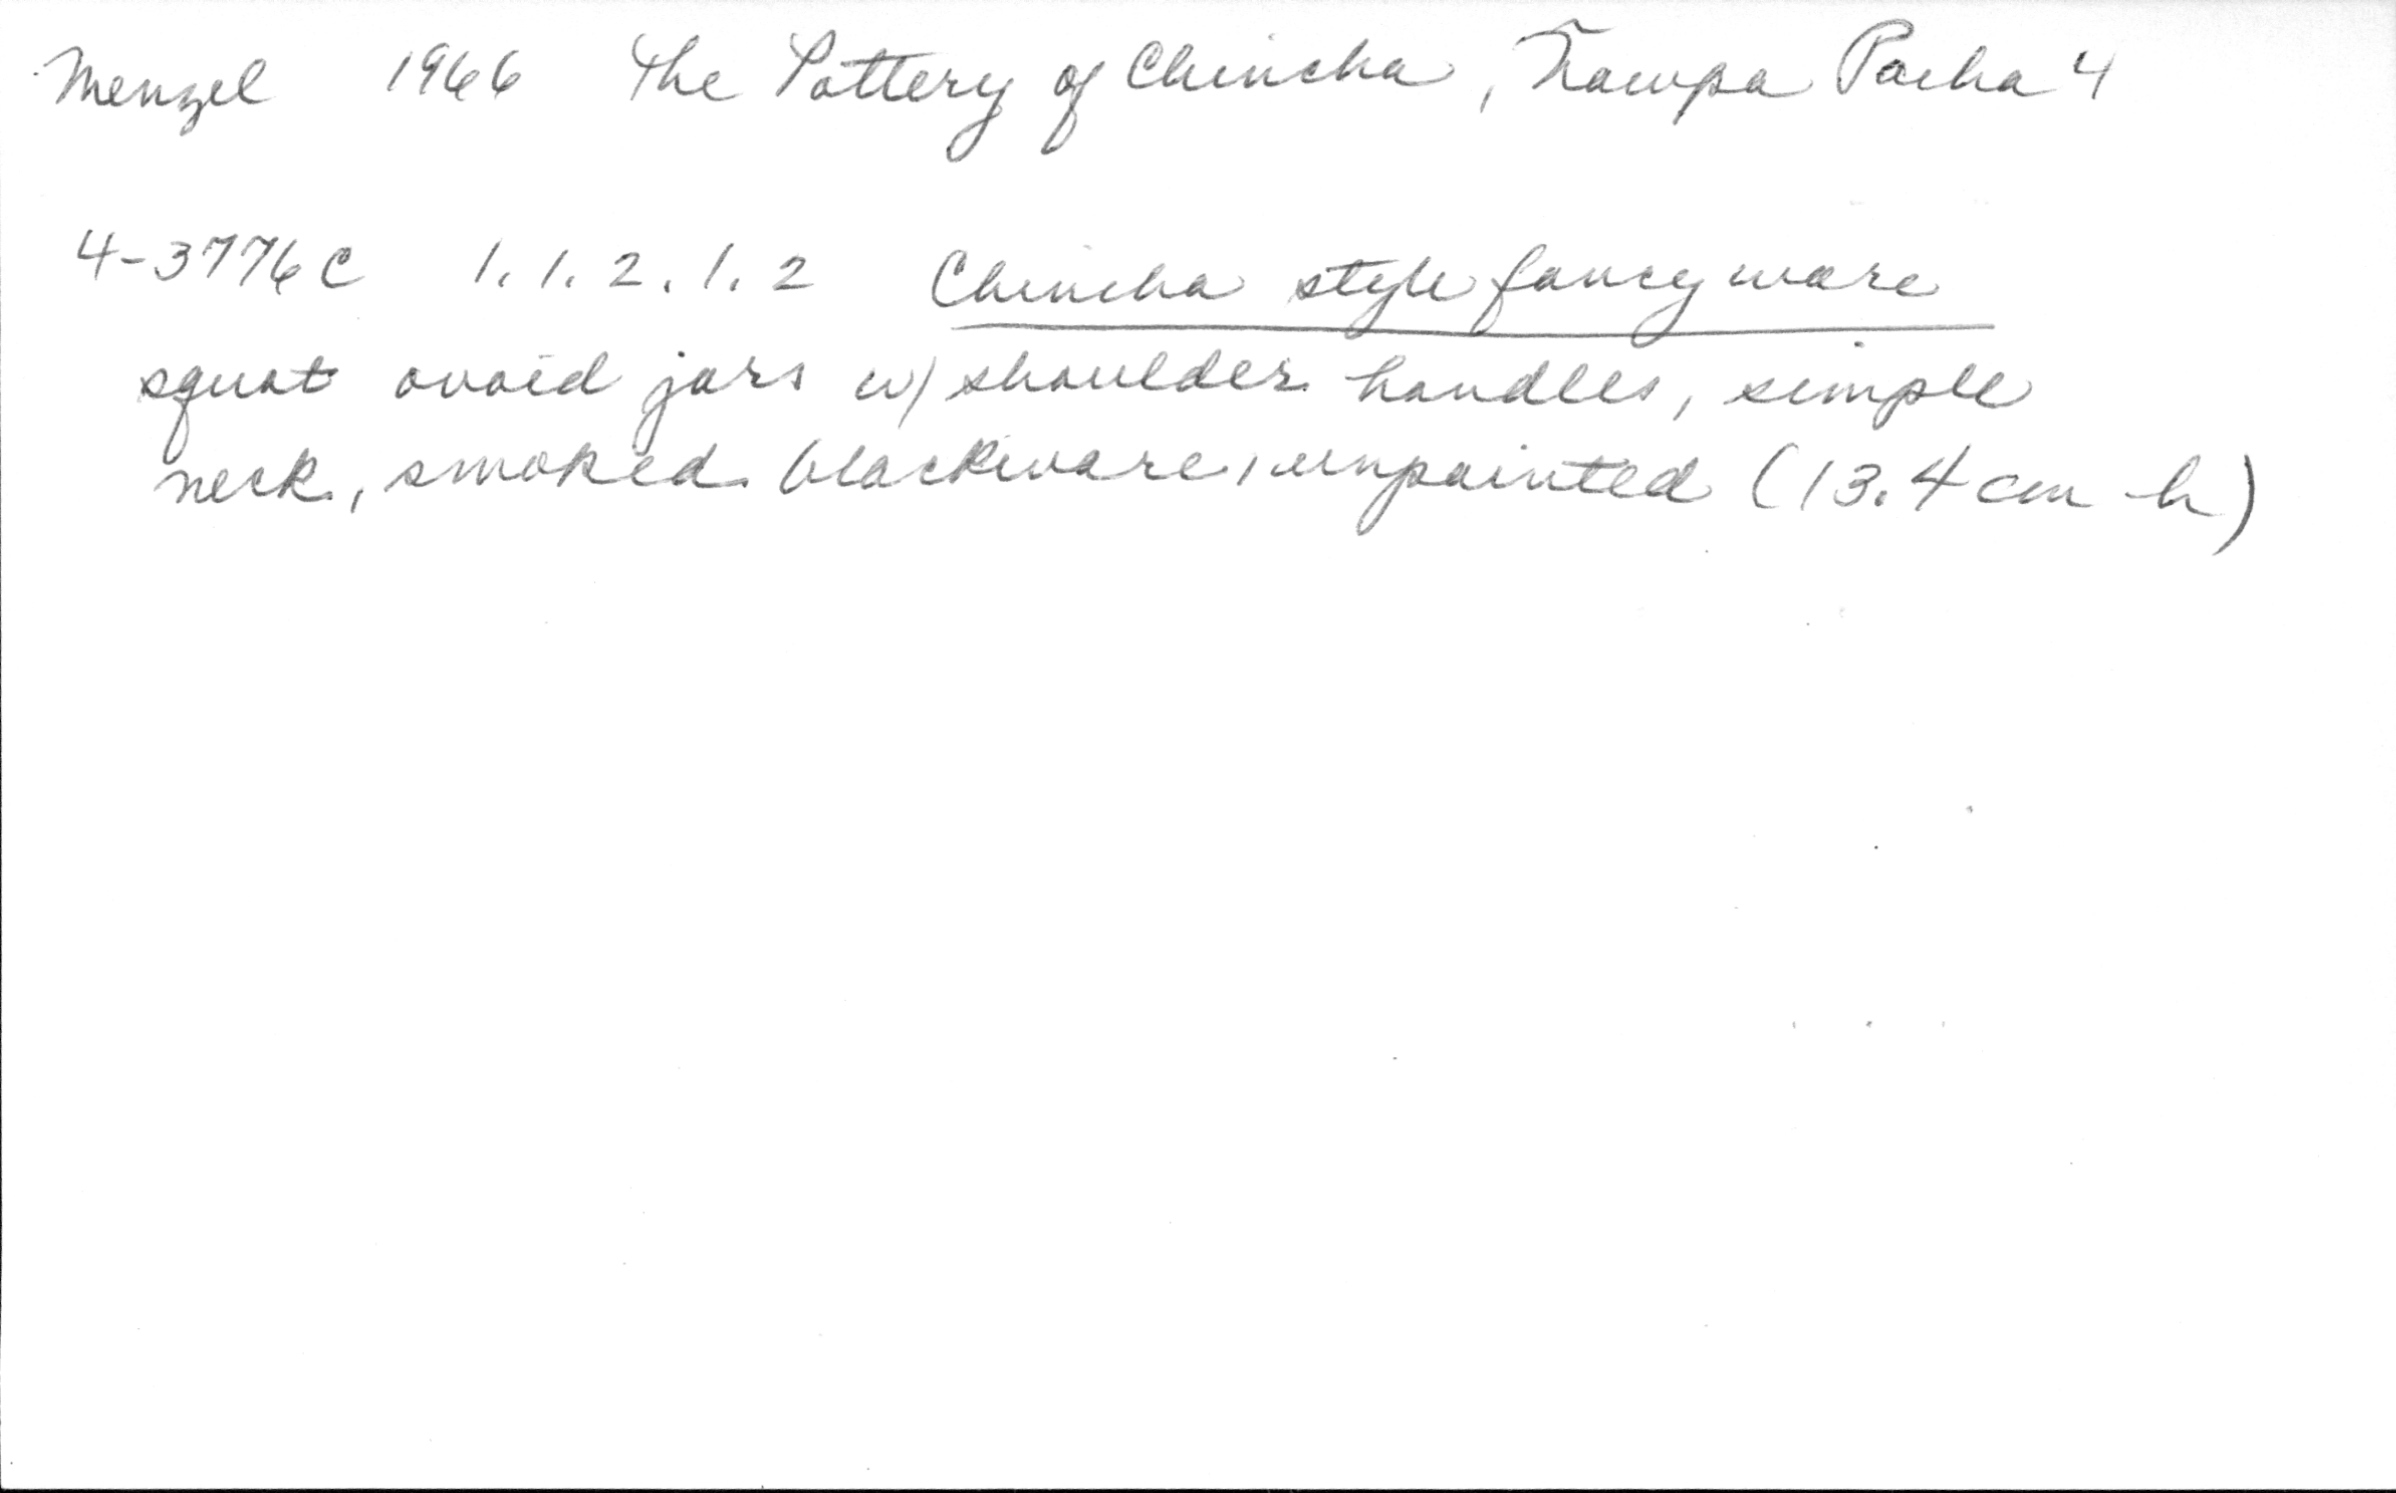 Menzel 1966 The Pottery of Chincha, Ñawpa Pacha 4
4-3776C 1.1.2.1.2 Chincha style fancy ware
squat ovoid jars w/ shoulder handles, simple
neck, smoked blackware, unpainted (13.4 cm h)